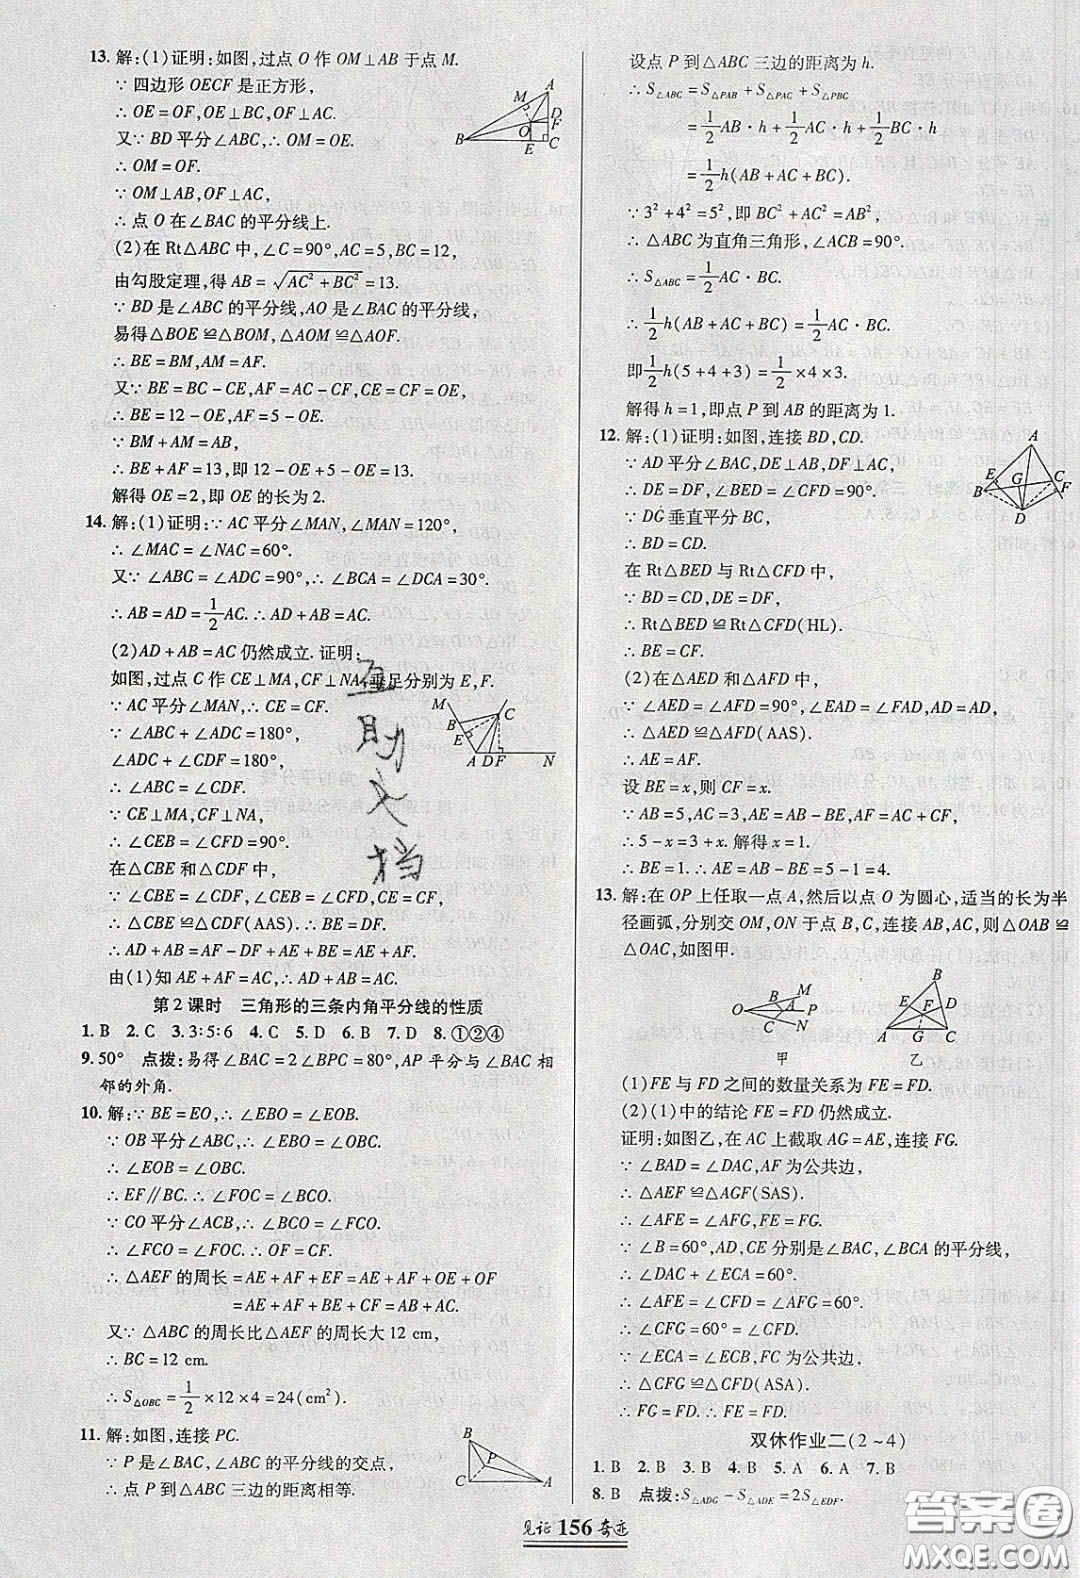 13. 解:(1)证明:如图,过点 O 作 OM⊥AB 于点 M.
∵ 四边形 OECF 是正方形,
∴ OE = OF,OE⊥BC,OF⊥AC.
又∵ BD 平分∠ABC,∴ OM = OE.
∴ OM = OF.
∵ OM⊥AB,OF⊥AC,
∴ 点 O 在∠BAC 的平分线上.
(2)在 Rt△ABC 中,∠C = 90°,AC = 5,BC = 12,
由勾股定理,得 AB = √(AC² + BC²) = 13.
∵ BD 是∠ABC 的平分线,AO 是∠BAC 的平分线,
易得△BOE≌△BOM,△AOM≌△AOF.
∴ BE = BM,AM = AF.
又∵ BE = BC − CE,AF = AC − CF,CE = CF = OE,
∴ BE = 12 − OE,AF = 5 − OE.
∵ BM + AM = AB,
∴ BE + AF = 13,即 12 − OE + 5 − OE = 13.
解得 OE = 2,即 OE 的长为 2.
A
M
D
F
O
B
E
C
14. 解:(1)证明:∵ AC 平分∠MAN,∠MAN = 120°,
∴ ∠MAC = ∠NAC = 60°.
又∵ ∠ABC = ∠ADC = 90°,∴ ∠BCA = ∠DCA = 30°.
∴ AB = AD = 1/2 AC. ∴ AD + AB = AC.
(2)AD + AB = AC 仍然成立. 证明:
如图,过点 C 作 CE⊥MA,CF⊥NA,垂足分别为 E,F.
∵ AC 平分∠MAN,∴ CE = CF.
∵ ∠ABC + ∠ADC = 180°,
∠ADC + ∠CDF = 180°,
∴ ∠ABC = ∠CDF.
∵ CE⊥MA,CF⊥NA,
∴ ∠CEB = ∠CFD = 90°.
在△CBE 和△CDF 中,
∵ ∠CBE = ∠CDF,∠CEB = ∠CFD,CE = CF,
∴ △CBE≌△CDF(AAS). ∴ BE = DF.
∴ AD + AB = AF − DF + AE + BE = AF + AE.
由(1)知 AE + AF = AC,∴ AD + AB = AC.
M
B
C
E
A D F N
互助文档
第 2 课时 三角形的三条内角平分线的性质
1. B 2. C 3. 3:5:6 4. C 5. D 6. B 7. D 8. ①②④
9. 50° 点拨:易得∠BAC = 2∠BPC = 80°,AP 平分与∠BAC 相
邻的外角.
10. 解:∵ BE = EO,∴ ∠EBO = ∠EOB.
∵ OB 平分∠ABC,∴ ∠EBO = ∠OBC.
∴ ∠EOB = ∠OBC.
∴ EF∥BC. ∴ ∠FOC = ∠BCO.
∵ CO 平分∠ACB,∴ ∠FCO = ∠BCO.
∴ ∠FCO = ∠FOC. ∴ OF = CF.
∴ △AEF 的周长 = AE + AF + EF = AE + AF + OE + OF
= AE + AF + BE + CF = AB + AC.
又∵ △ABC 的周长比△AEF 的周长大 12 cm,
∴ BC = 12 cm.
∴ S△OBC = 1/2 × 12 × 4 = 24(cm²).
11. 解:如图,连接 PC.
∵ P 是∠BAC,∠ABC 的平分线的交点,
∴ 点 P 到△ABC 三边的距离相等.
B
P
C
A
设点 P 到△ABC 三边的距离为 h.
∴ S△ABC = S△PAB + S△PAC + S△PBC
= 1/2 AB·h + 1/2 AC·h + 1/2 BC·h
= 1/2 h(AB + AC + BC).
∵ 3² + 4² = 5²,即 BC² + AC² = AB²,
∴ △ABC 为直角三角形,∠ACB = 90°.
∴ S△ABC = 1/2 AC·BC.
∴ 1/2 h(AB + AC + BC) = 1/2 AC·BC.
即 1/2 h(5 + 4 + 3) = 1/2 × 4 × 3.
解得 h = 1,即点 P 到 AB 的距离为 1.
12. 解:(1)证明:如图,连接 BD,CD.
∵ AD 平分∠BAC,DE⊥AB,DF⊥AC,
∴ DE = DF,∠BED = ∠CFD = 90°.
∵ DG 垂直平分 BC,
∴ BD = CD.
在 Rt△BED 与 Rt△CFD 中,
∵ BD = CD,DE = DF,
∴ Rt△BED≌Rt△CFD(HL).
∴ BE = CF.
(2)在△AED 和△AFD 中,
∵ ∠AED = ∠AFD = 90°,∠EAD = ∠FAD,AD = AD,
∴ △AED≌△AFD(AAS).
∴ AE = AF.
设 BE = x,则 CF = x.
∵ AB = 5,AC = 3,AE = AB − BE,AF = AC + CF,
∴ 5 − x = 3 + x. 解得 x = 1.
∴ BE = 1. ∴ AE = AB − BE = 5 − 1 = 4.
A
E
G
C
B
F
D
13. 解:在 OP 上任取一点 A,然后以点 O 为圆心,适当的长为半
径画弧,分别交 OM,ON 于点 B,C,连接 AB,AC,则△OAB≌
△OAC,如图甲.
B M
O A P
C N
甲
B
E F D
A G C
乙
(1)FE 与 FD 之间的数量关系为 FE = FD.
(2)(1)中的结论 FE = FD 仍然成立.
证明:如图乙,在 AC 上截取 AG = AE,连接 FG.
∵ ∠BAD = ∠DAC,AF 为公共边,
∴ △AEF≌△AGF(SAS).
∴ ∠AFE = ∠AFG,FE = FG.
∵ ∠B = 60°,AD,CE 分别是∠BAC,∠BCA 的平分线,
∴ ∠DAC + ∠ECA = 60°.
∴ ∠AFE = ∠CFD = ∠AFG = 60°.
∴ ∠CFG = 60° = ∠CFD.
∵ ∠ECA = ∠BCE,CF 为公共边,
∴ △CFG≌△CFD(ASA).
∴ FG = FD. ∴ FE = FD.
双休作业二(2 ~ 4)
1. B 2. B 3. B 4. B 5. A 6. A 7. B
8. B 点拨:S△ADG − S△ADE = 2S△EDF.
见证 156 奇迹
答案圈
MXQE.COM